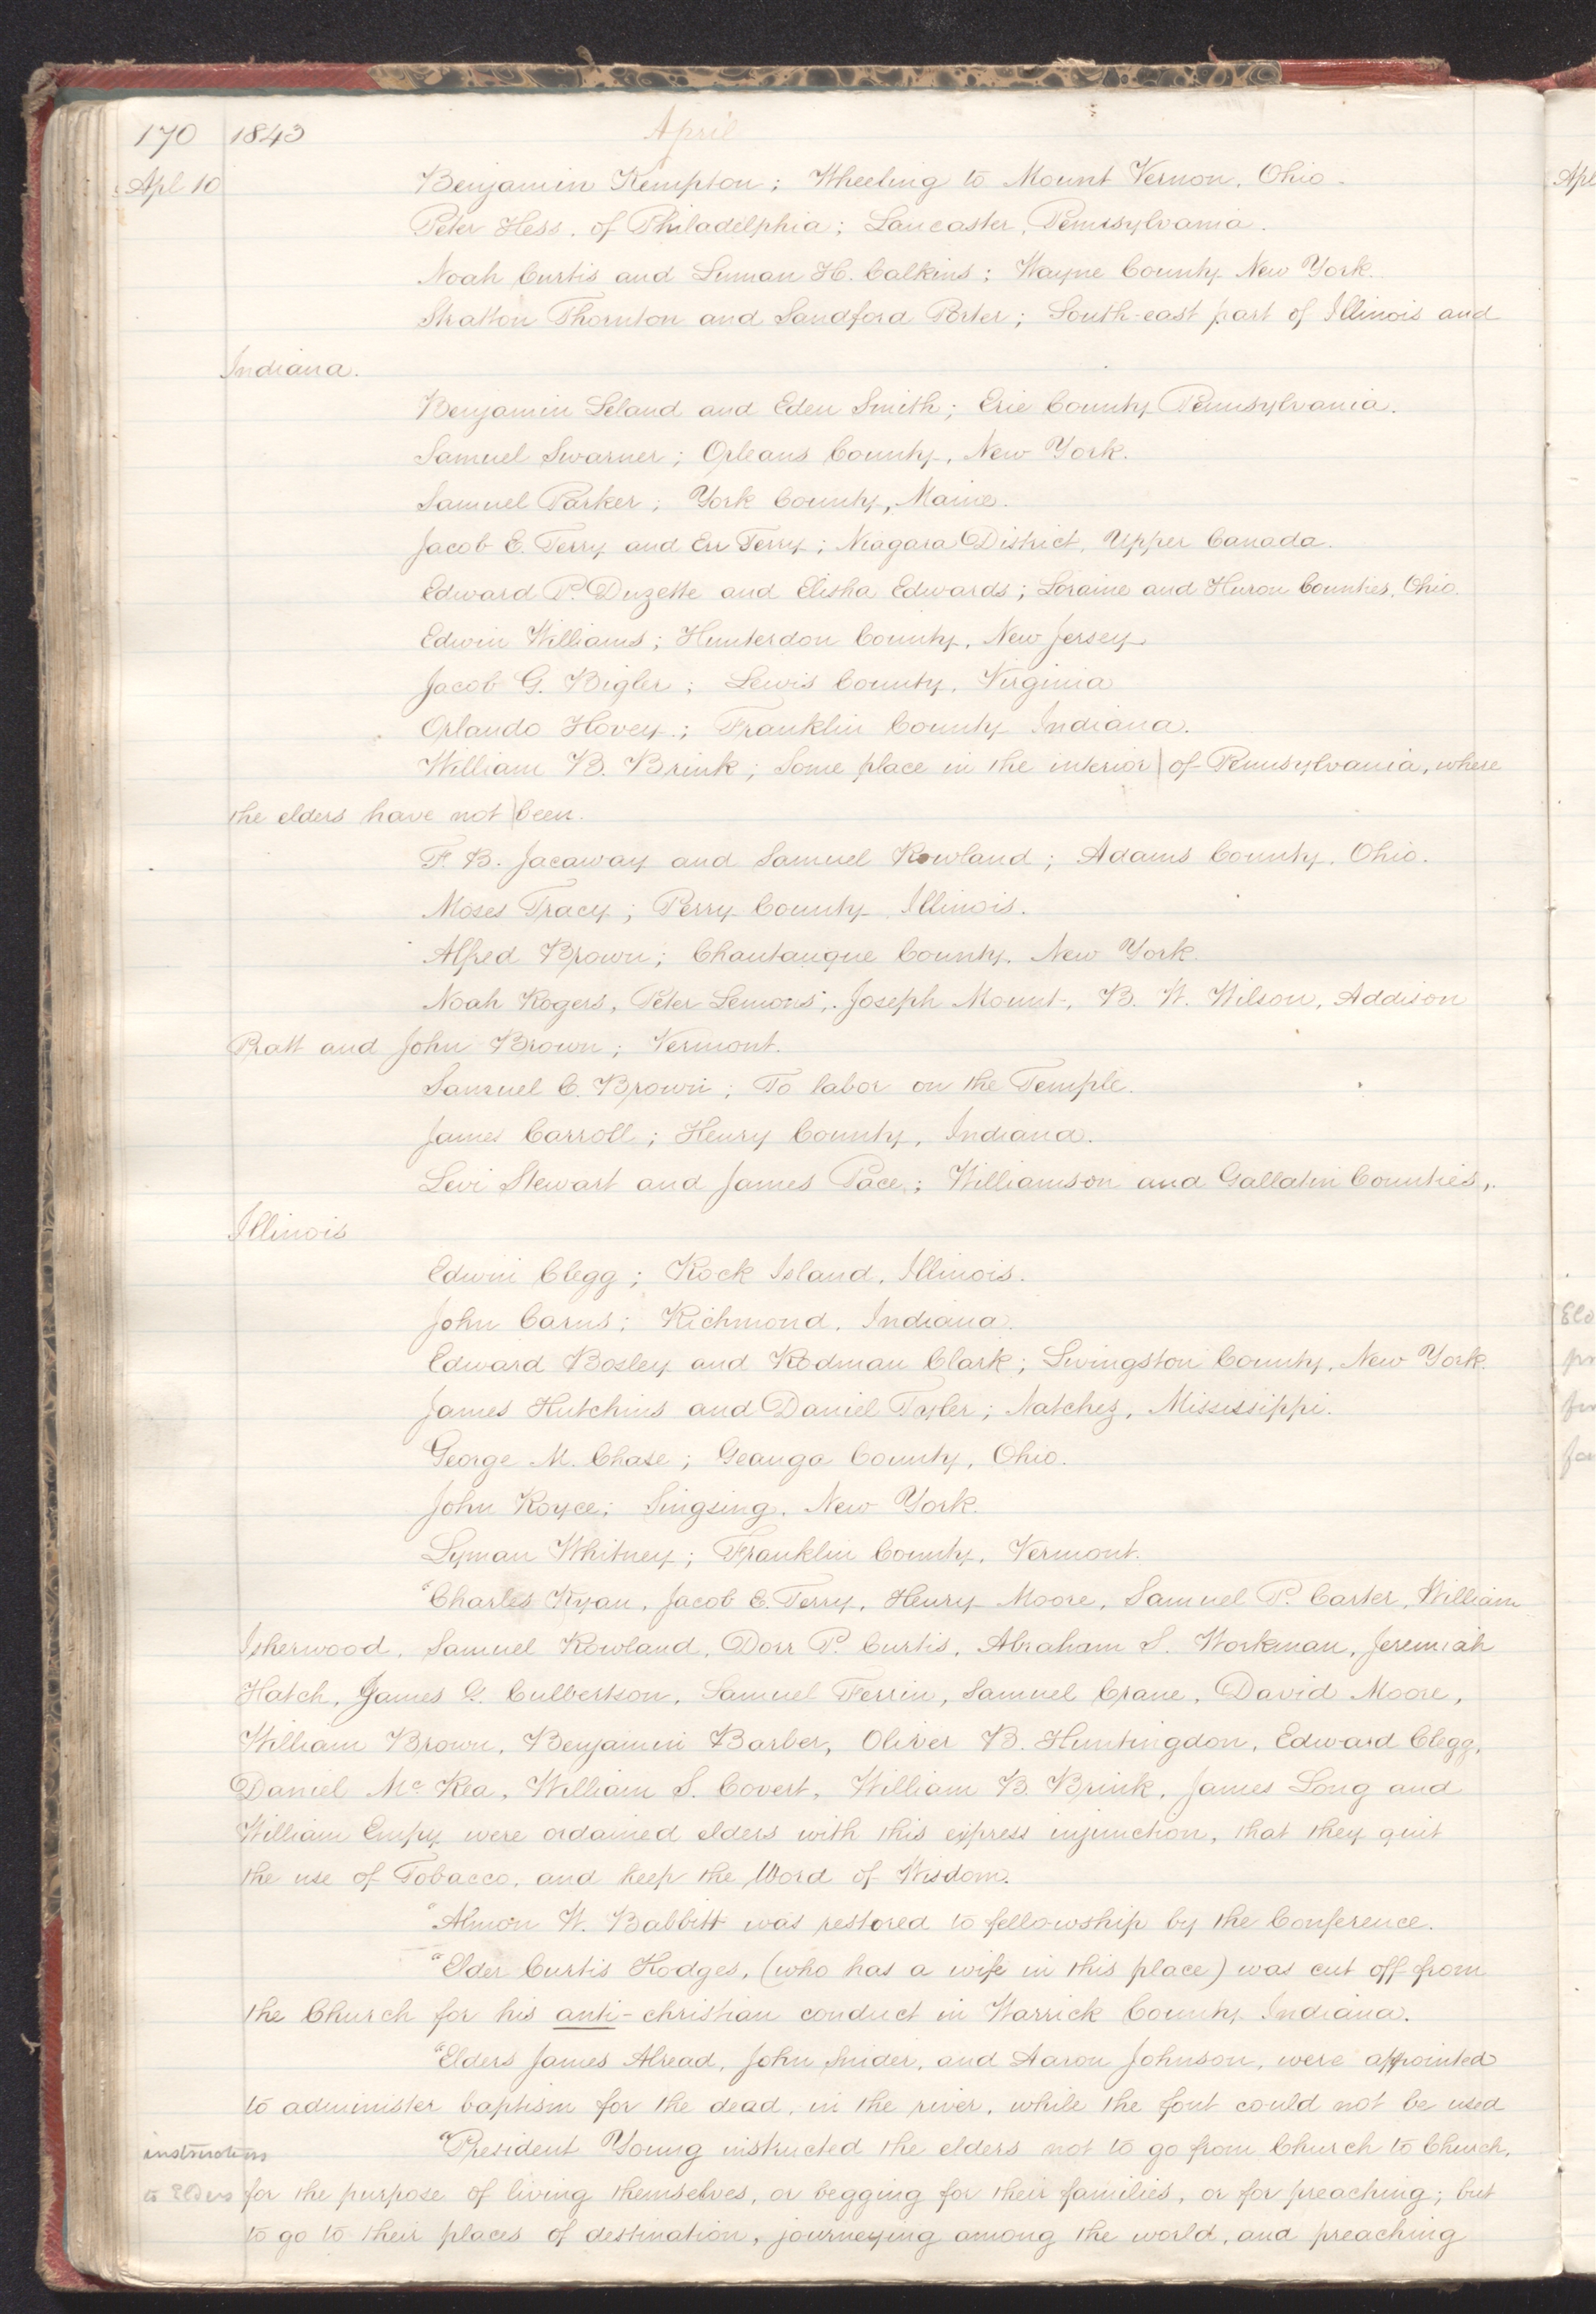 170 1843 April
Apl 10 Benjamin Kempton; Wheeling to Mount Vernon, Ohio.
Peter Hess, of Philadelphia; Lancaster, Pennsylvania.
Noah Curtis and Luman H. Calkins; Wayne County New York.
Stratton Thornton and Sandford Porter; South-east part of Illinois and
Indiana.
Benjamin Leland and Eden Smith; Erie County Pennsylvania.
Samuel Swarner; Orleans County, New York.
Samuel Parker; York County, Maine.
Jacob E. Terry and Err Terry; Niagara District, Upper Canada.
Edward P. Duzette and Elisha Edwards; Loraine and Huron Counties, Ohio.
Edwin Williams; Hunterdon County, New Jersey
Jacob G. Bigler; Lewis County, Virginia
Orlando Hovey; Franklin County Indiana.
William B. Brink; Some place in the interior of Pennsylvania, where
the elders have not been.
F. B. Jacaway and Samuel Rowland; Adams County, Ohio.
Moses Tracy; Perry County Illinois.
Alfred Brown; Chautauque County, New York.
Noah Rogers, Peter Lemons, Joseph Mount, B. W. Wilson, Addison
Pratt and John Brown; Vermont.
Samuel C. Brown; To labor on the Temple.
James Carroll; Henry County, Indiana.
Levi Stewart and James Pace; Williamson and Gallatin Counties,
Illinois
Edwin Clegg; Rock Island, Illinois.
John Carns; Richmond, Indiana.
Edward Bosley and Rodman Clark; Livingston County, New York.
James Hutchins and Daniel Tyler; Natchez, Mississippi.
George M. Chase; Geauga County, Ohio.
John Royce; Singsing, New York.
Lyman Whitney; Franklin County, Vermont.
"Charles Ryan, Jacob E. Terry, Henry Moore, Samuel P. Carter, William
Isherwood, Samuel Rowland, Dorr P. Curtis, Abraham S. Workman, Jeremiah
Hatch, James G. Culbertson, Samuel Ferrin, Samuel Crane, David Moore,
William Brown, Benjamin Barber, Oliver B. Huntingdon, Edward Clegg,
Daniel Mc Rea, William S. Covert, William B. Brink, James Long and
William Empy were ordained elders with this express injunction, that they quit
the use of Tobacco, and keep the Word of Wisdom.
"Almon W. Babbitt was restored to fellowship by the Conference.
"Elder Curtis Hodges, (who has a wife in this place) was cut off from
the Church for his anti-christian conduct in Warrick County Indiana.
"Elders James Alread, John Snider, and Aaron Johnson, were appointed
to administer baptism for the dead, in the river, while the font could not be used
instructions "President Young instructed the elders not to go from Church to Church,
to Elders for the purpose of living themselves, or begging for their families, or for preaching; but
to go to their places of destination, journeying among the world, and preaching
Apl